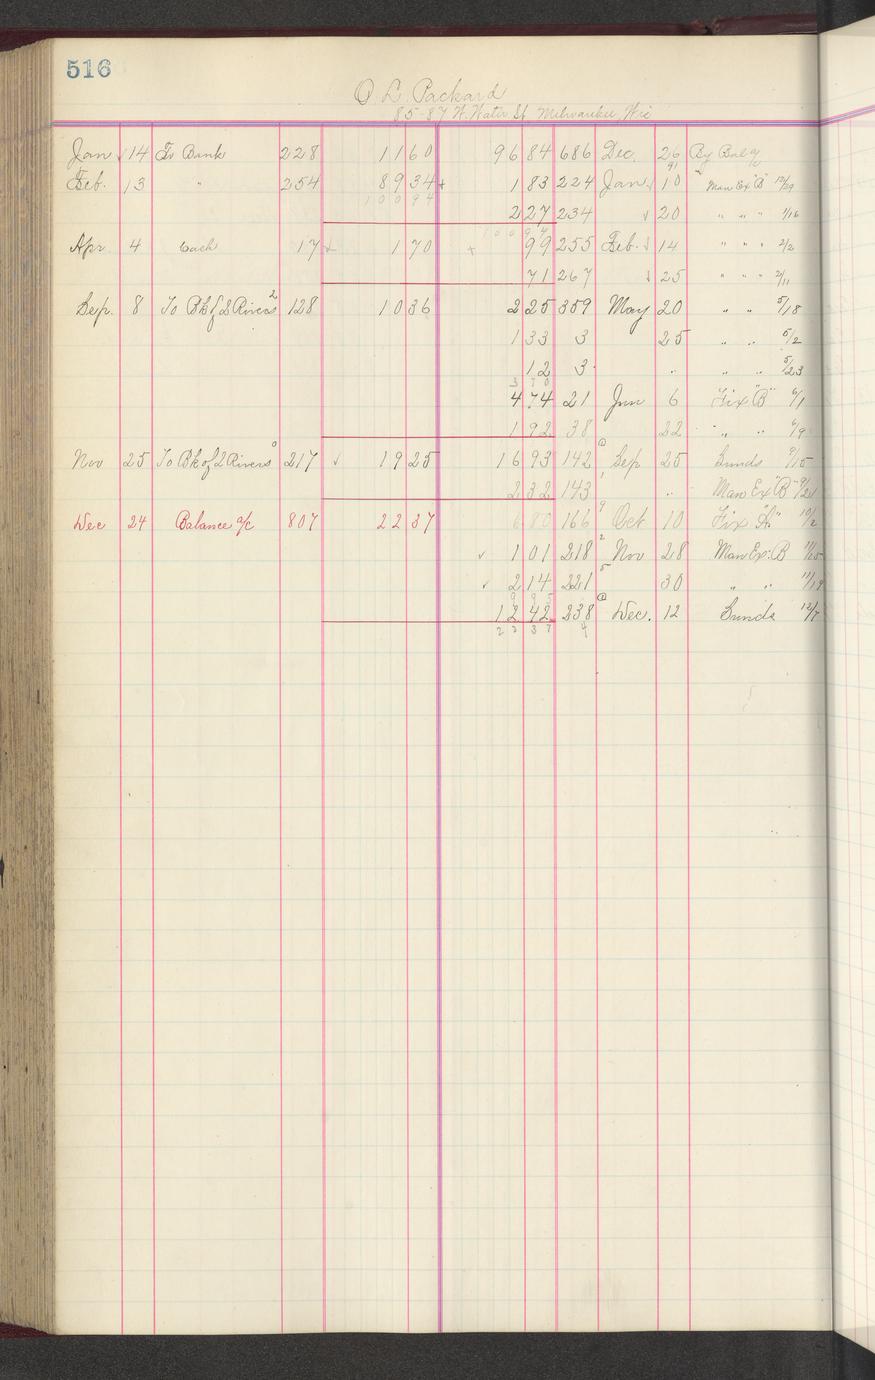 516
O L Packard
85-87 W. Water St Milwaukee, Wis
Jan 14 To Bank 228 11 60 96 84 686 Dec. 26 By Bal
91
Feb. 13 " 254 89 34 1 83 224 Jan 10 Man Ex "B" 12/29
100 94
2 27 234 20 " " " 1/16
100 94
Apr 4 Cash 17 1 70 99 255 Feb. 14 " " " 2/2
71 267 25 " " " 2/11
Sep. 8 To Bk of 2 Rivers 2 128 10 36 2 25 359 May 20 " " 5/18
1 33 3 25 " " 5/2
12 3 " " " 5/23
3 70
4 74 21 Jun 6 Fix "B" 6/1
1 92 38 22 " " 6/9
Nov 25 To Bk of 2 Rivers 0 217 19 25 16 93 142 Sep 25 Sunds 9/15
2 32 143 " Man Ex "B" 9/21
Dec 24 Balance a/c 807 22 37 6 80 166 Oct 10 Fix "A" 10/2
1 01 218 Nov 28 Man Ex: B
2 14 221 30 " " 11/19
9 95
12 42 238 Dec. 12 Sunds 12/7
22 37 4